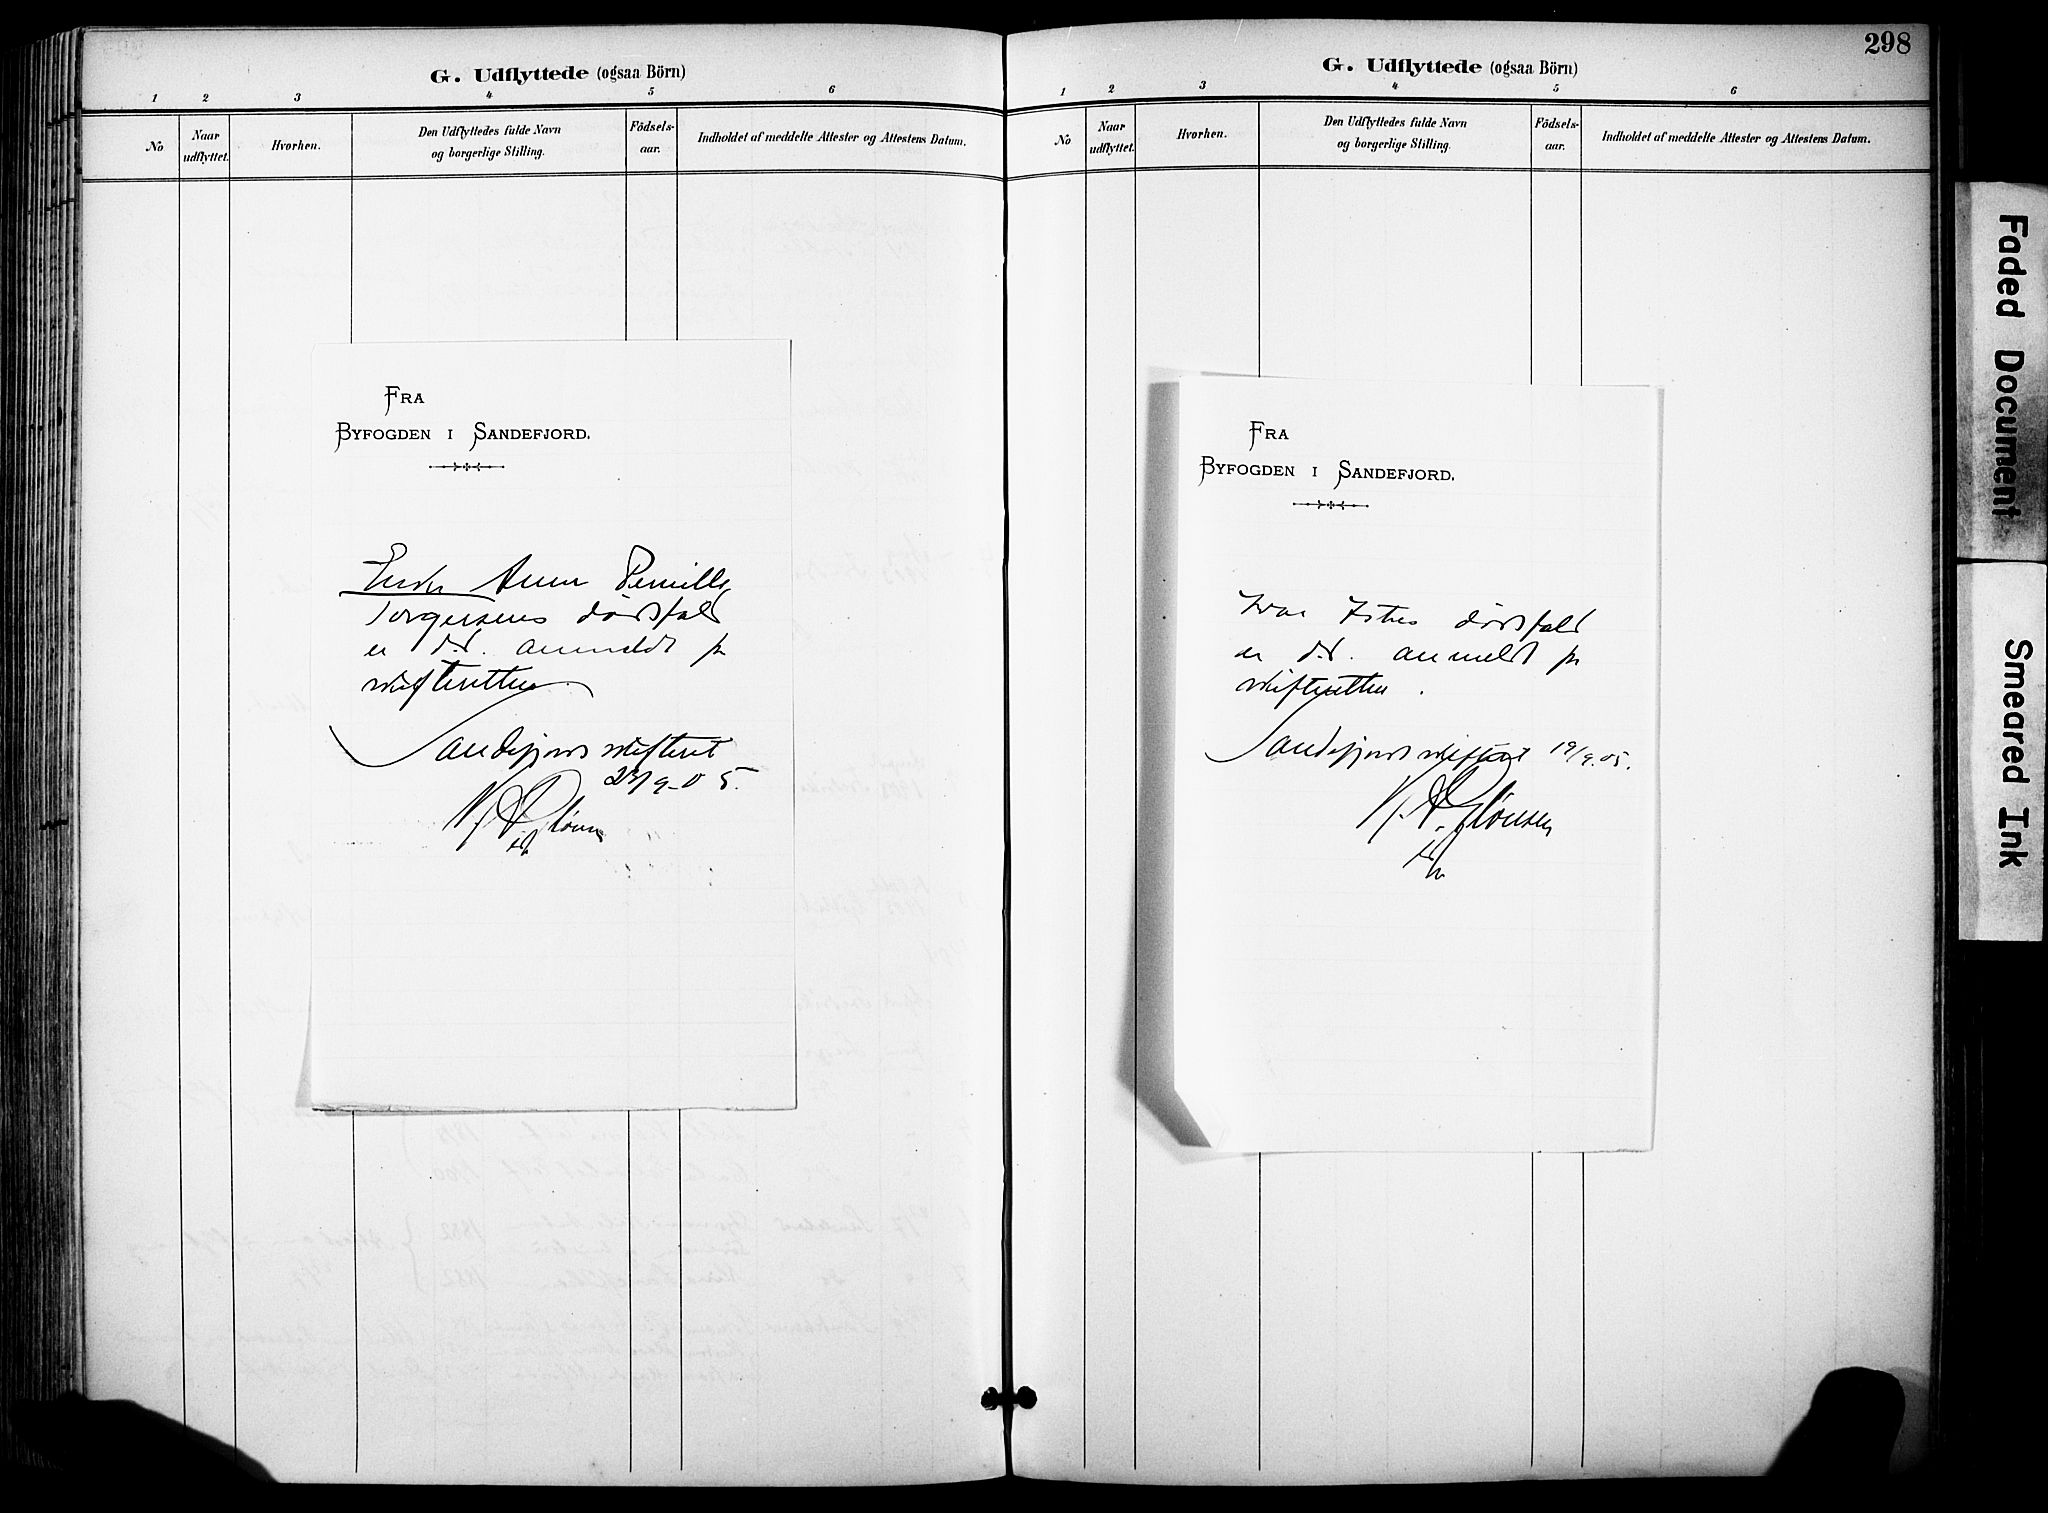 G. Udflyttede (ogsaa Börn)
1 2 3 4 5 6
No
Naar udflyttet.
Hvorhen.
Den Udflyttedes fulde Navn
og borgerlige Stilling.
Födsels-
aar.
Indholdet af meddelte Attester og Attestens Datum.
FRA
BYFOGDEN I SANDEFJORD.
Enke Anne Pernille
Torgersens dødsfald
er d.d. anmeldt for
skifteretten.
Sandefjords skifteret
23/9-05.
298
G. Udflyttede (ogsaa Börn)
1 2 3 4 5 6
No
Naar
udflyttet.
Hvorhen.
Den Udflyttedes fulde Navn
og borgerlige Stilling.
Födsels-
aar.
Indholdet af meddelte Attester og Attestens Datum.
FRA
BYFOGDEN I SANDEFJORD.
Ivar dødsfald
er d.d. anmeldt for
skifteretten.
Sandefjords skifteret 19/9.05.
Faded Document
Smeared Ink